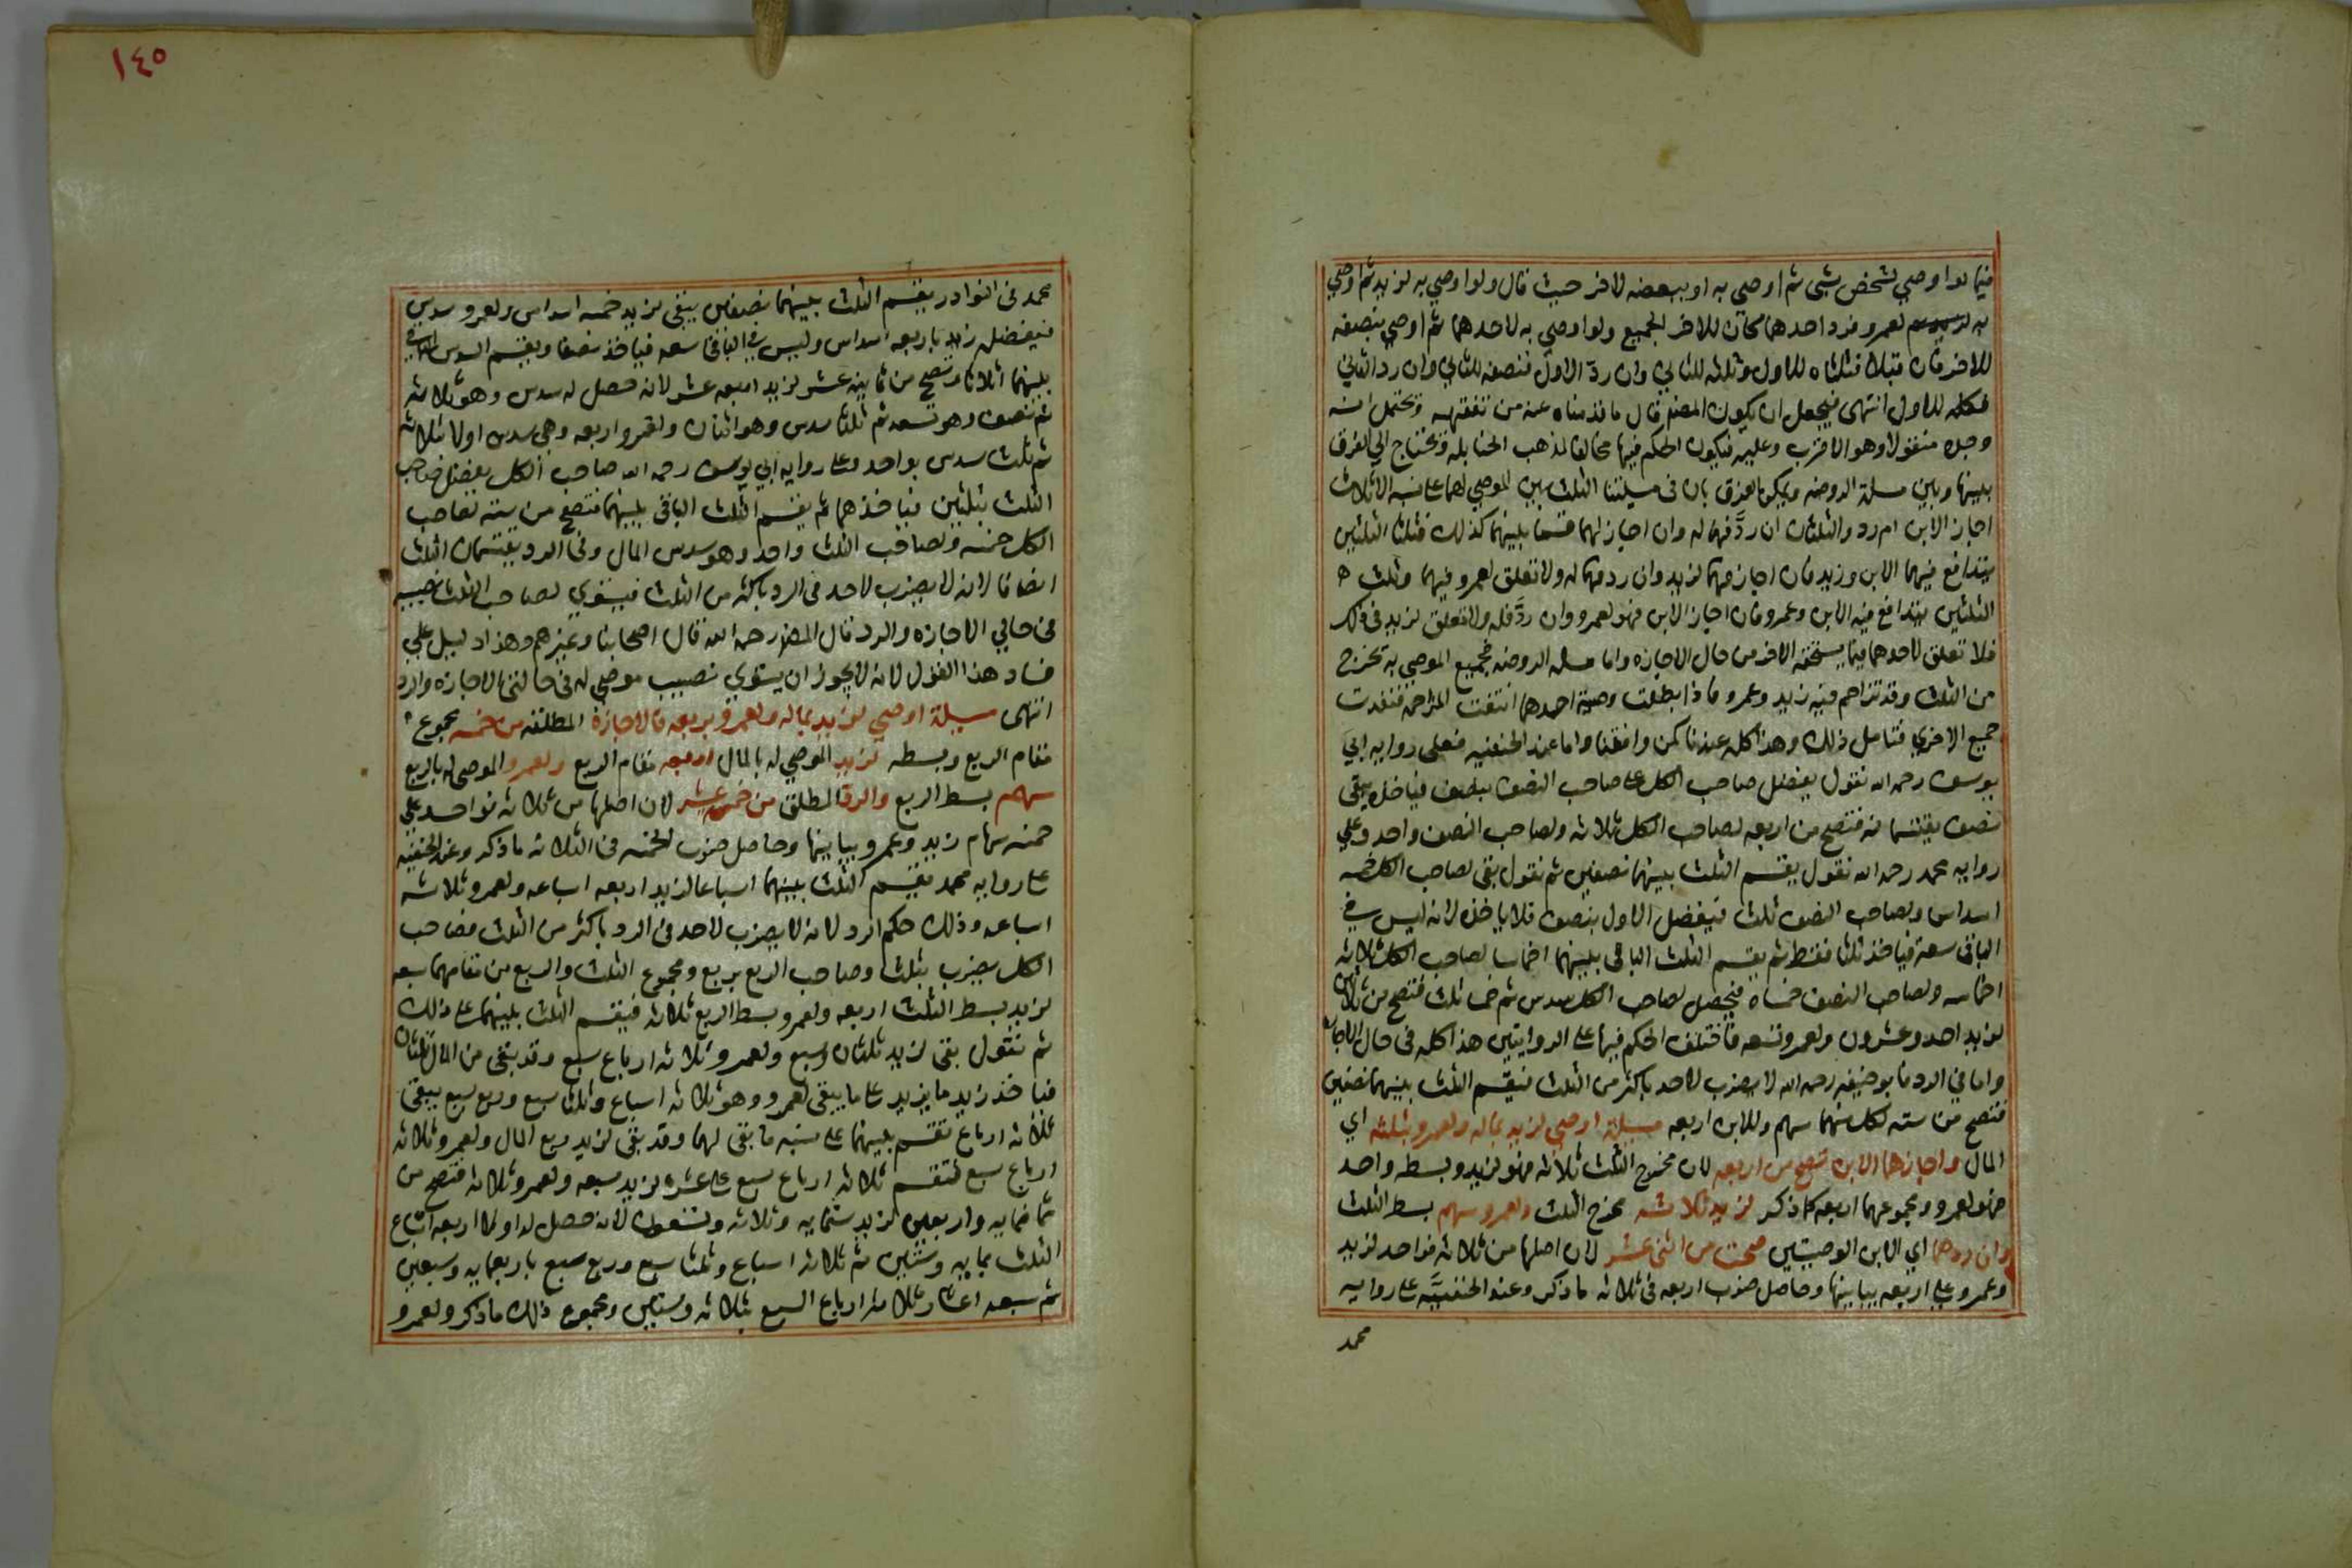 فيما لو اوصي لشخص بشي ثم اوصي به او ببعضه لاخر حيث قال ولو اوصي به لزيد ثم اوصي
به لعمرو فرد احدهما كان للاخر الجميع ولو اوصي به لاحدهما ثم اوصي بنصفه
للاخر فان قبلا فثلثاه للاول وثلثه للثاني وان ردّ الاول فنصفه للثاني وان رد الثاني
فكله للاول انتهى فيحتمل ان يكون المصنف قال ما قدمناه عنه من تفقهه ويحتمل انه
وجده منقولا وهو الاقرب وعليه فيكون الحكم فيها مخالفا لمذهب الحنابله فيحتاج الي الفرق
بينها وبين مسلة الروضه ويمكن الفرق بان في مسيلتنا الثلث بين الموصي لهما على نسبة الاثلاث
اجاز الابن ام رد والثلثان ان ردَّ فهما له وان اجاز لهما قسما بينهما كذلك فثلثا الثلثين
يتدافع فيهما الابن وزيد فان اجاز فهما لزيد وان رد فهما له ولا تعلق لعمرو فيهما وثلث
الثلثين يتدافع فيه الابن وعمرو فان اجاز الابن فهو لعمرو وان ردَّ فله ولا تعلق لزيد في ذلك
فلا تعلق لاحدهما فيما يستحقه الاخر من حال الاجازه واما مسلة الروضه فجميع الموصي به تخرج
من الثلث وقد تزاحم فيه زيد وعمرو فاذا بطلت وصية احدهما انتفت المزاحمه فنفذت
جميع الاخري فتامل ذلك وهذا كله عندنا كمن وافقنا واما عند الحنفيه فعلى روايه ابي
يوسف رحمه الله نقول يفضل صاحب الكل على صاحب النصف بنصف فياخذه يبقى
نصف يقتسمانه فتصح من اربعه لصاحب الكل ثلاثه ولصاحب النصف واحد وعلي
روايه محمد رحمه الله نقول يقسم الثلث بينهما نصفين ثم نقول بقى لصاحب الكل خمسه
اسداس ولصاحب النصف ثلث فيفضل الاول بنصف فلا ياخذه لانه ليس في
الباقي سعة فياخذ ثلثا فقط ثم يقسم الثلث الباقي بينهما اخماسا لصاحب الكل ثلاثه
اخماسه ولصاحب النصف خمساه فيحصل لصاحب الكل سدس ثم خمسا ثلث فتصح من ثلاثين
لزيد احد وعشرون ولعمرو تسعه فاختلف الحكم فيها على الروايتين هذا كله في حال الاجازه
واما في الرد فابو حنيفه رحمه الله لا يضرب لاحد باكثر من الثلث فيقسم الثلث بينهما نصفين
فتصح من سته لكل منهما سهم وللابن اربعه مسيلة اوصي لزيد بماله ولعمرو بثلثه اي
المال واجازهما الابن تصح من اربعه لان مخرج الثلث ثلاثه فهو لزيد وبسطه واحد
فهو لعمرو ومجموعهما اربعه كما ذكر لزيد ثلاثه مخرج الثلث ولعمرو سهم بسط الثلث
وان ردهما اي الابن الوصيتين صحت من اثنى عشر لان اصلها من ثلاثه فواحد لزيد
وعمرو على اربعه يباينها وحاصل ضرب اربعه في ثلاثه ما ذكر وعند الحنفيَّه على روايه
محمد
١٤٥
محمد في النوادر يقسم الثلث بينهما نصفين يبقى لزيد خمسه اسداس ولعمرو سدس
فيفضل زيد باربعه اسداس وليس في الباقي سعه فياخذ نصفا ويقسم السدس الباقي
بينهما اثلاثا وتصح من ثمانيه عشر لزيد اربعه عشر لانه حصل له سدس وهو ثلاثه
ثم نصف وهو تسعه ثم ثلثا سدس وهو اثنان ولعمرو اربعه وهي سدس اولا ثلاثه
ثم ثلث سدس بواحد وعلى روايه ابي يوسف رحمه الله صاحب الكل يفضل صاحب
الثلث بثلثين فياخذهما ثم يقسم الثلث الباقي بينهما فتصح من سته لصاحب
الكل خمسه ولصاحب الثلث واحد وهو سدس المال وفي الرد يقتسمان الثلث
انصافا لانه لا يضرب لاحد في الرد باكثر من الثلث فيستوي لصاحب الثلث نصيبه
في حالي الاجازه والرد قال المصنف رحمه الله قال اصحابنا وغيرهم وهذا دليل علي
فساد هذا القول لانه لا يجوز ان يستوي نصيب موصي له في حالتي الاجازه والرد
انتهى مسيلة اوصي لزيد بماله ولعمرو بربعه فالاجازة المطلقه من خمسه مجموع
مقام الربع وبسطه لزيد الموصي له بالمال اربعه مقام الربع ولعمرو الموصى له بالربع
سهم بسط الربع والرد المطلق من خمسة عشر لان اصلها من ثلاثه فواحد على
خمسه سهام زيد وعمرو يباينها وحاصل ضرب الخمسه في الثلاثه ما ذكر وعند الحنفيه
على روايه محمد يقسم الثلث بينهما اسباعا لزيد اربعه اسباعه ولعمرو ثلاثه
اسباعه وذلك حكم الرد لانه لا يضرب لاحد في الرد باكثر من الثلث فصاحب
الكل يضرب بثلث وصاحب الربع بربع ومجموع الثلث والربع من مقامهما سبعه
لزيد بسط الثلث اربعه ولعمرو بسط الربع ثلاثه فيقسم الثلث بينهما على ذلك
ثم نقول بقى لزيد ثلثان وسبع ولعمرو ثلاثه ارباع سبع وقد بقي من المال ثلثان
فياخذ زيد ما يزيد على ما يبقى لعمرو وهو ثلاثه اسباع وثلثا سبع وربع سبع يبقى
ثلاثه ارباع تقسم بينهما على نسبه ما بقى لهما وقد بقى لزيد ربع المال ولعمرو ثلاثه
ارباع سبع فتقسم ثلاثه ارباع سبع على عشره لزيد سبعه ولعمرو ثلاثه فتصح من
ثمانمايه واربعين لزيد ستمايه وثلاثه وتسعون لانه حصل له اولا اربعه اسباع
الثلث بمايه وستين ثم ثلاثه اسباع وثلثا سبع وربع سبع باربعمايه وسبعين
ثم سبعه اعشار ثلاثه ارباع السبع بثلاثه وستين ومجموع ذلك ما ذكر ولعمرو